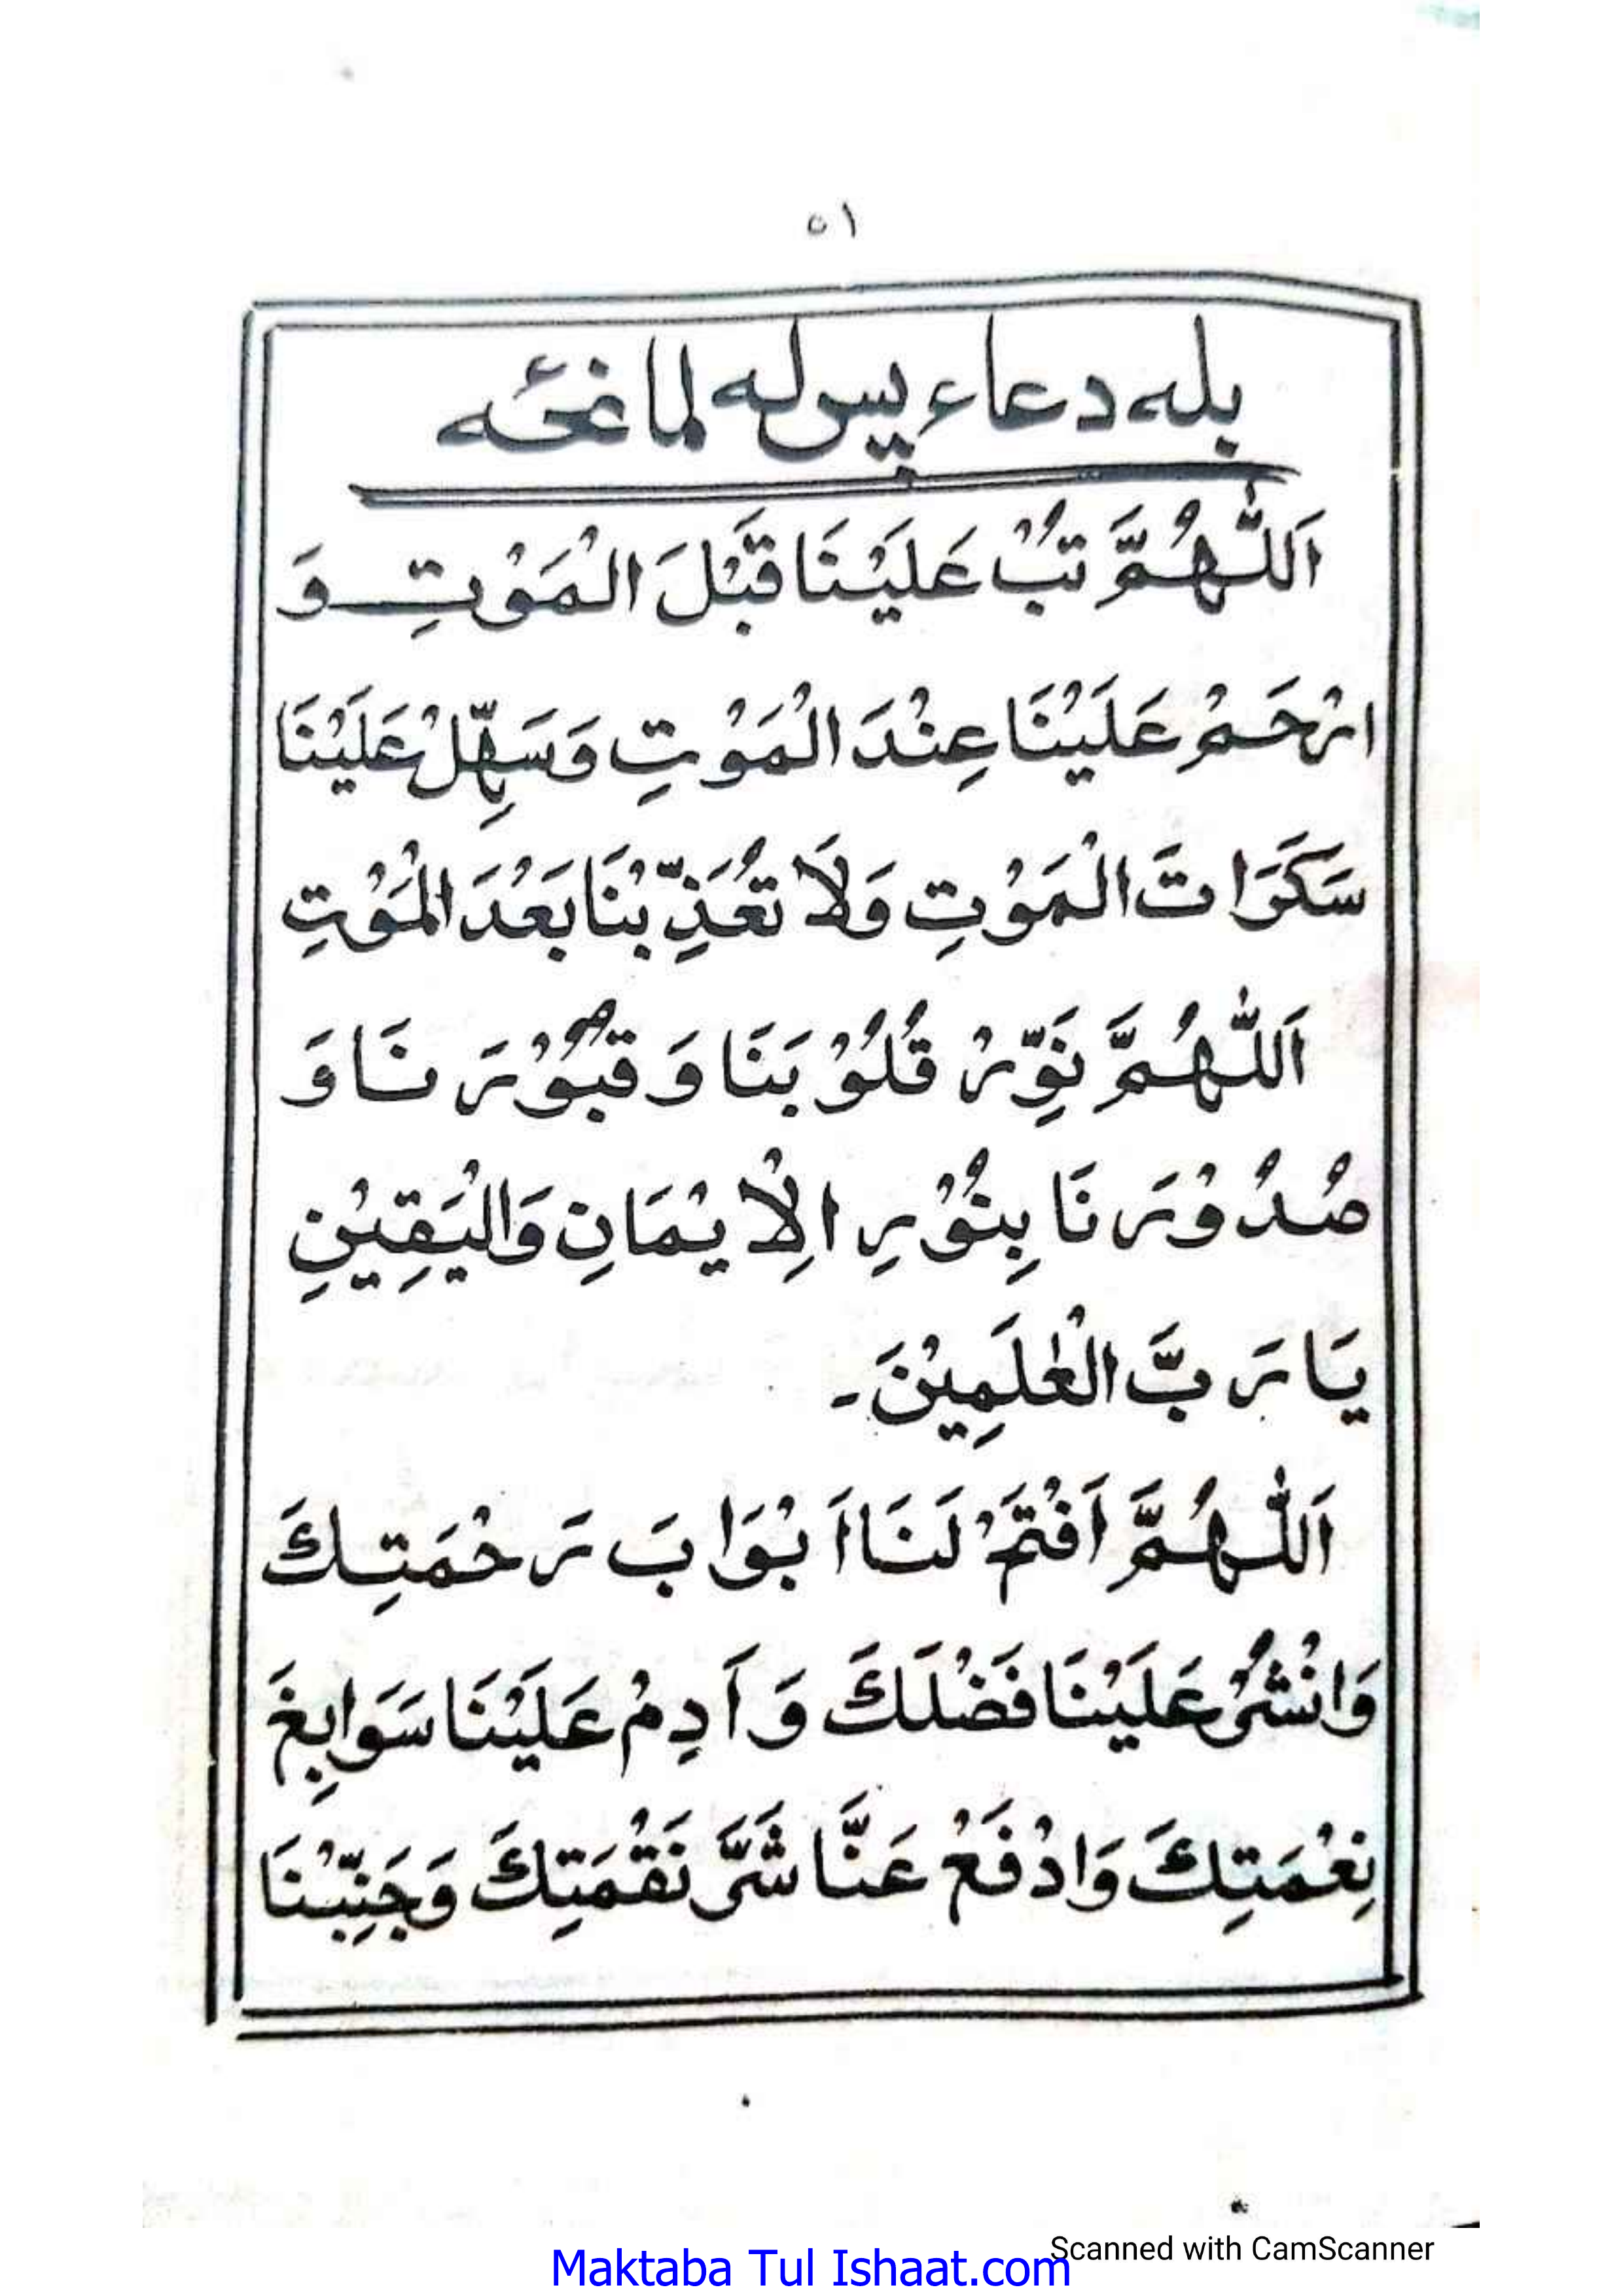 ٥١
بله دعاء پس له لمانځه
اَللّٰهُمَّ تُبْ عَلَيْنَا قَبْلَ الْمَوْتِ وَ
ارْحَمْ عَلَيْنَا عِنْدَ الْمَوْتِ وَسَهِّلْ عَلَيْنَا
سَكَرَاتَ الْمَوْتِ وَلَا تُعَذِّبْنَا بَعْدَ الْمَوْتِ
اَللّٰهُمَّ نَوِّرْ قُلُوْبَنَا وَ قُبُوْرَنَا وَ
صُدُوْرَنَا بِنُوْرِ الْاِيْمَانِ وَالْيَقِيْنِ
يَا رَبَّ الْعٰلَمِيْنَ۔
اَللّٰهُمَّ اَفْتَحْ لَنَا اَبْوَابَ رَحْمَتِكَ
وَانْشُرْ عَلَيْنَا فَضْلَكَ وَ اَدِمْ عَلَيْنَا سَوَابِغَ
نِعْمَتِكَ وَادْفَعْ عَنَّا شَرَّ نَقْمَتِكَ وَجَنِّبْنَا
Scanned with CamScanner
Maktaba Tul Ishaat.com